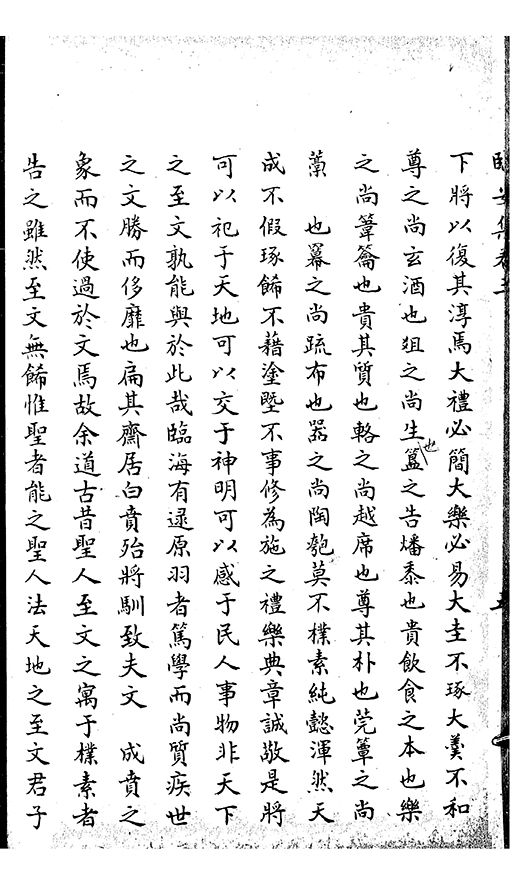 下將以復其淳焉大禮必簡大樂必易大圭不琢大羹不和
尊之尚玄酒也俎之尚生也簋之告燔黍也貴飲食之本也樂
之尚葦籥也貴其質也輅之尚越席也尊其朴也莞簟之尚
藁 也羃之尚疏布也器之尚陶匏莫不樸素純懿渾然天
成不假琢餙不藉塗塈不事修為施之禮樂典章誠敬是將
可以祀于天地可以交于神明可以感于民人事物非天下
之至文孰能與於此哉臨海有逯原羽者篤學而尚質疾世
之文勝而侈靡也扁其齋居曰賁殆將馴致夫文 成賁之
象而不使過於文焉故余道古昔聖人至文之寓于樸素者
告之雖然至文無餙惟聖者能之聖人法天地之至文君子